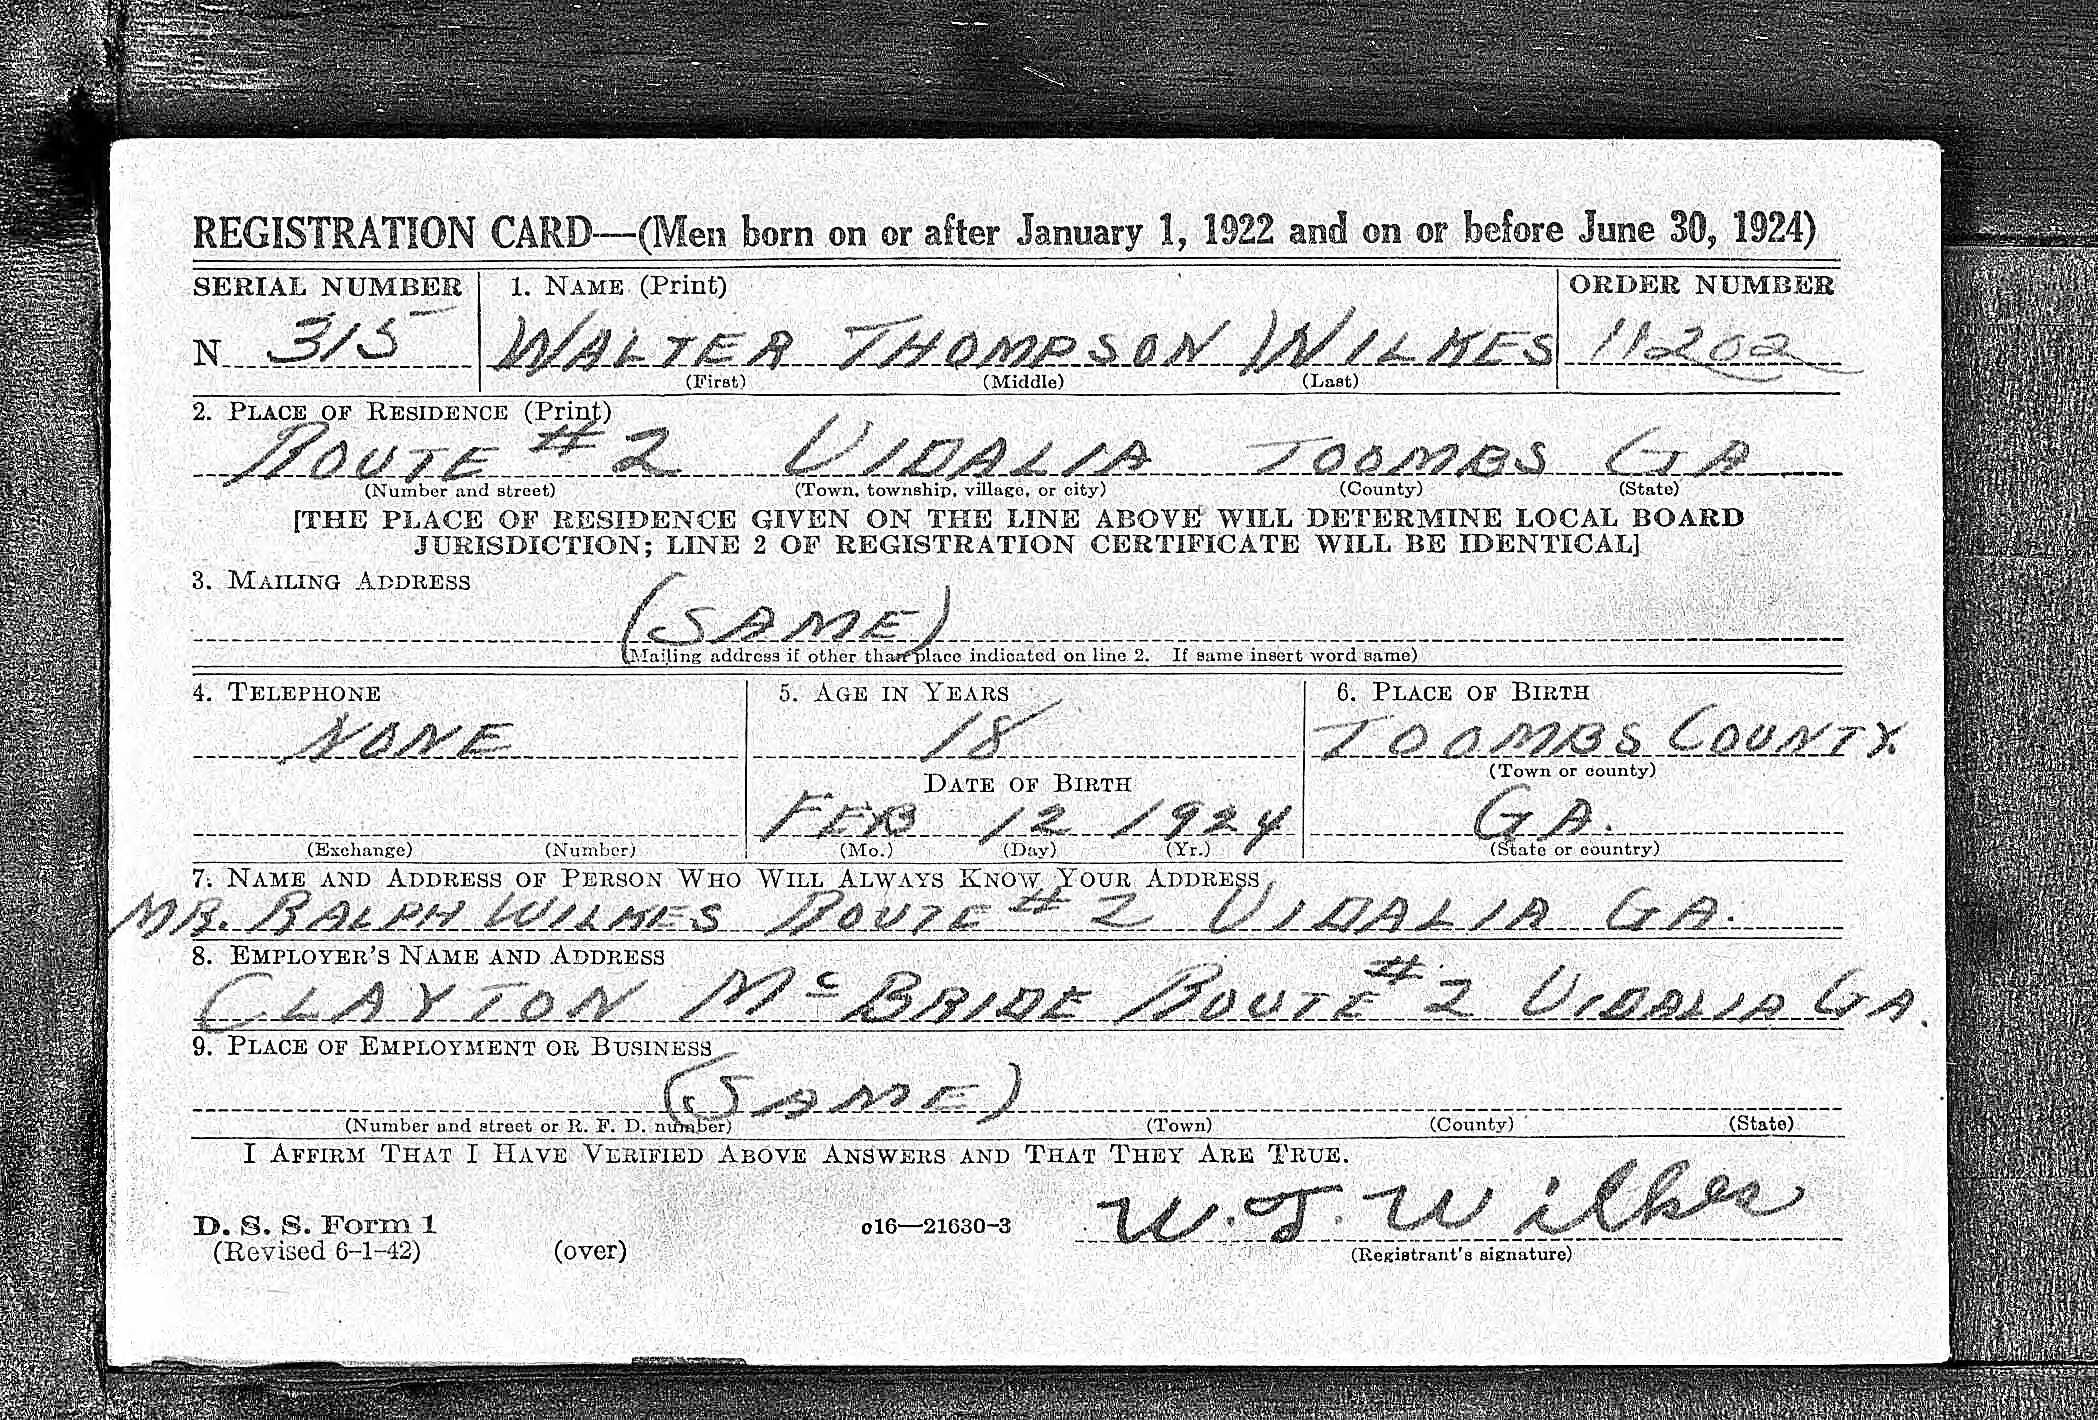 REGISTRATION CARD—(Men born on or after January 1, 1922 and on or before June 30, 1924)
SERIAL NUMBER 1. NAME (Print) ORDER NUMBER
N 315 WALTER THOMPSON WILKES 11202
(First) (Middle) (Last)
2. PLACE OF RESIDENCE (Print)
ROUTE #2 VIDALIA TOOMBS GA
(Number and street) (Town, township, village, or city) (County) (State)
[THE PLACE OF RESIDENCE GIVEN ON THE LINE ABOVE WILL DETERMINE LOCAL BOARD
JURISDICTION; LINE 2 OF REGISTRATION CERTIFICATE WILL BE IDENTICAL]
3. MAILING ADDRESS
(SAME)
(Mailing address if other than place indicated on line 2. If same insert word same)
4. TELEPHONE 5. AGE IN YEARS 6. PLACE OF BIRTH
NONE 18 TOOMBS COUNTY.
(Town or county)
DATE OF BIRTH
FEB 12 1924 GA.
(Exchange) (Number) (Mo.) (Day) (Yr.) (State or country)
7. NAME AND ADDRESS OF PERSON WHO WILL ALWAYS KNOW YOUR ADDRESS
MR. RALPH WILKES ROUTE #2 VIDALIA GA.
8. EMPLOYER'S NAME AND ADDRESS
CLAYTON McBRIDE ROUTE #2 VIDALIA GA.
9. PLACE OF EMPLOYMENT OR BUSINESS
(SAME)
(Number and street or R. F. D. number) (Town) (County) (State)
I AFFIRM THAT I HAVE VERIFIED ABOVE ANSWERS AND THAT THEY ARE TRUE.
W. T. Wilkes
D. S. S. Form 1 c16—21630-3
(Revised 6-1-42) (over) (Registrant's signature)